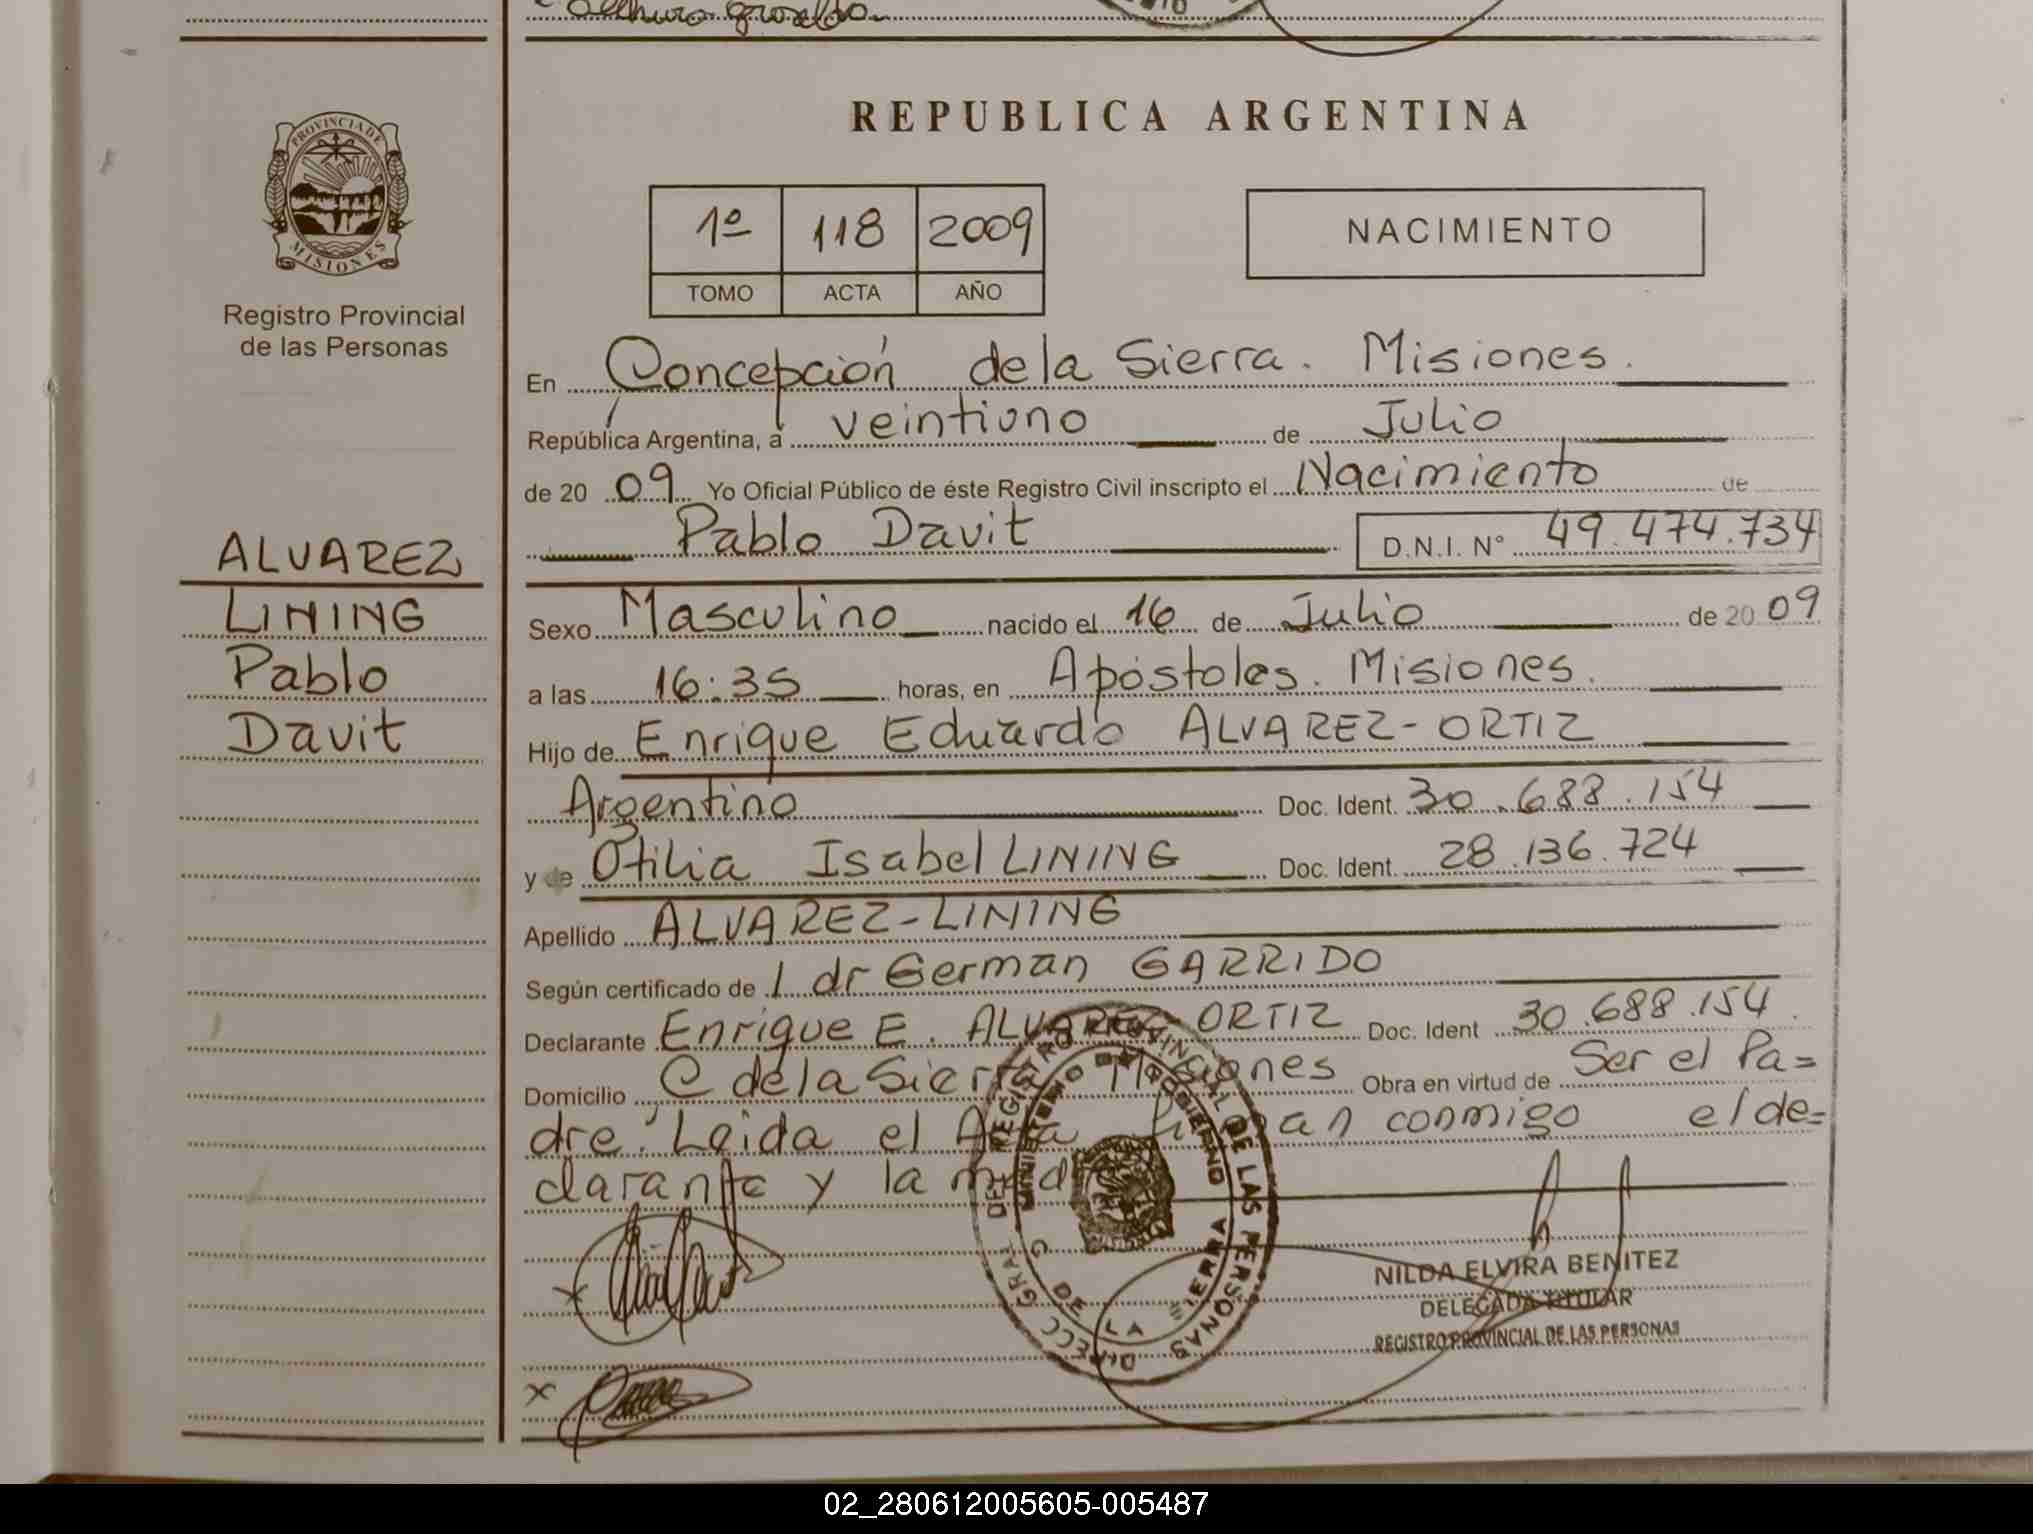 REPUBLICA ARGENTINA
PROVINCIA DE
MISIONES
Registro Provincial
de las Personas
1º 118 2009
TOMO ACTA AÑO
NACIMIENTO
En Concepción de la Sierra. Misiones.
República Argentina, a veintiuno de Julio
de 20 09 Yo Oficial Público de éste Registro Civil inscripto el Nacimiento de
Pablo Davit D.N.I. Nº 49.474.734
ALVAREZ
LINING
Pablo
Davit
Sexo Masculino nacido el 16 de Julio de 20 09
a las 16:35 horas, en Apóstoles. Misiones.
Hijo de Enrique Eduardo ALVAREZ-ORTIZ
Argentino Doc. Ident. 30.688.154
y de Otilia Isabel LINING Doc. Ident. 28.136.724
Apellido ALVAREZ-LINING
Según certificado de l dr German GARRIDO
Declarante Enrique E. ALVAREZ-ORTIZ Doc. Ident 30.688.154.
Domicilio C de la Sierra Misiones Obra en virtud de Ser el Pa=
dre. Leida el Acta firman conmigo el de=
clarante y la mad
DIRECC GRAL DEL REGISTRO PROVINCIAL DE LAS PERSONAS
MINISTERIO DE GOBIERNO
C DE LA SIERRA
NILDA ELVIRA BENITEZ
DELEGADA TITULAR
REGISTRO PROVINCIAL DE LAS PERSONAS
x
x
02_280612005605-005487